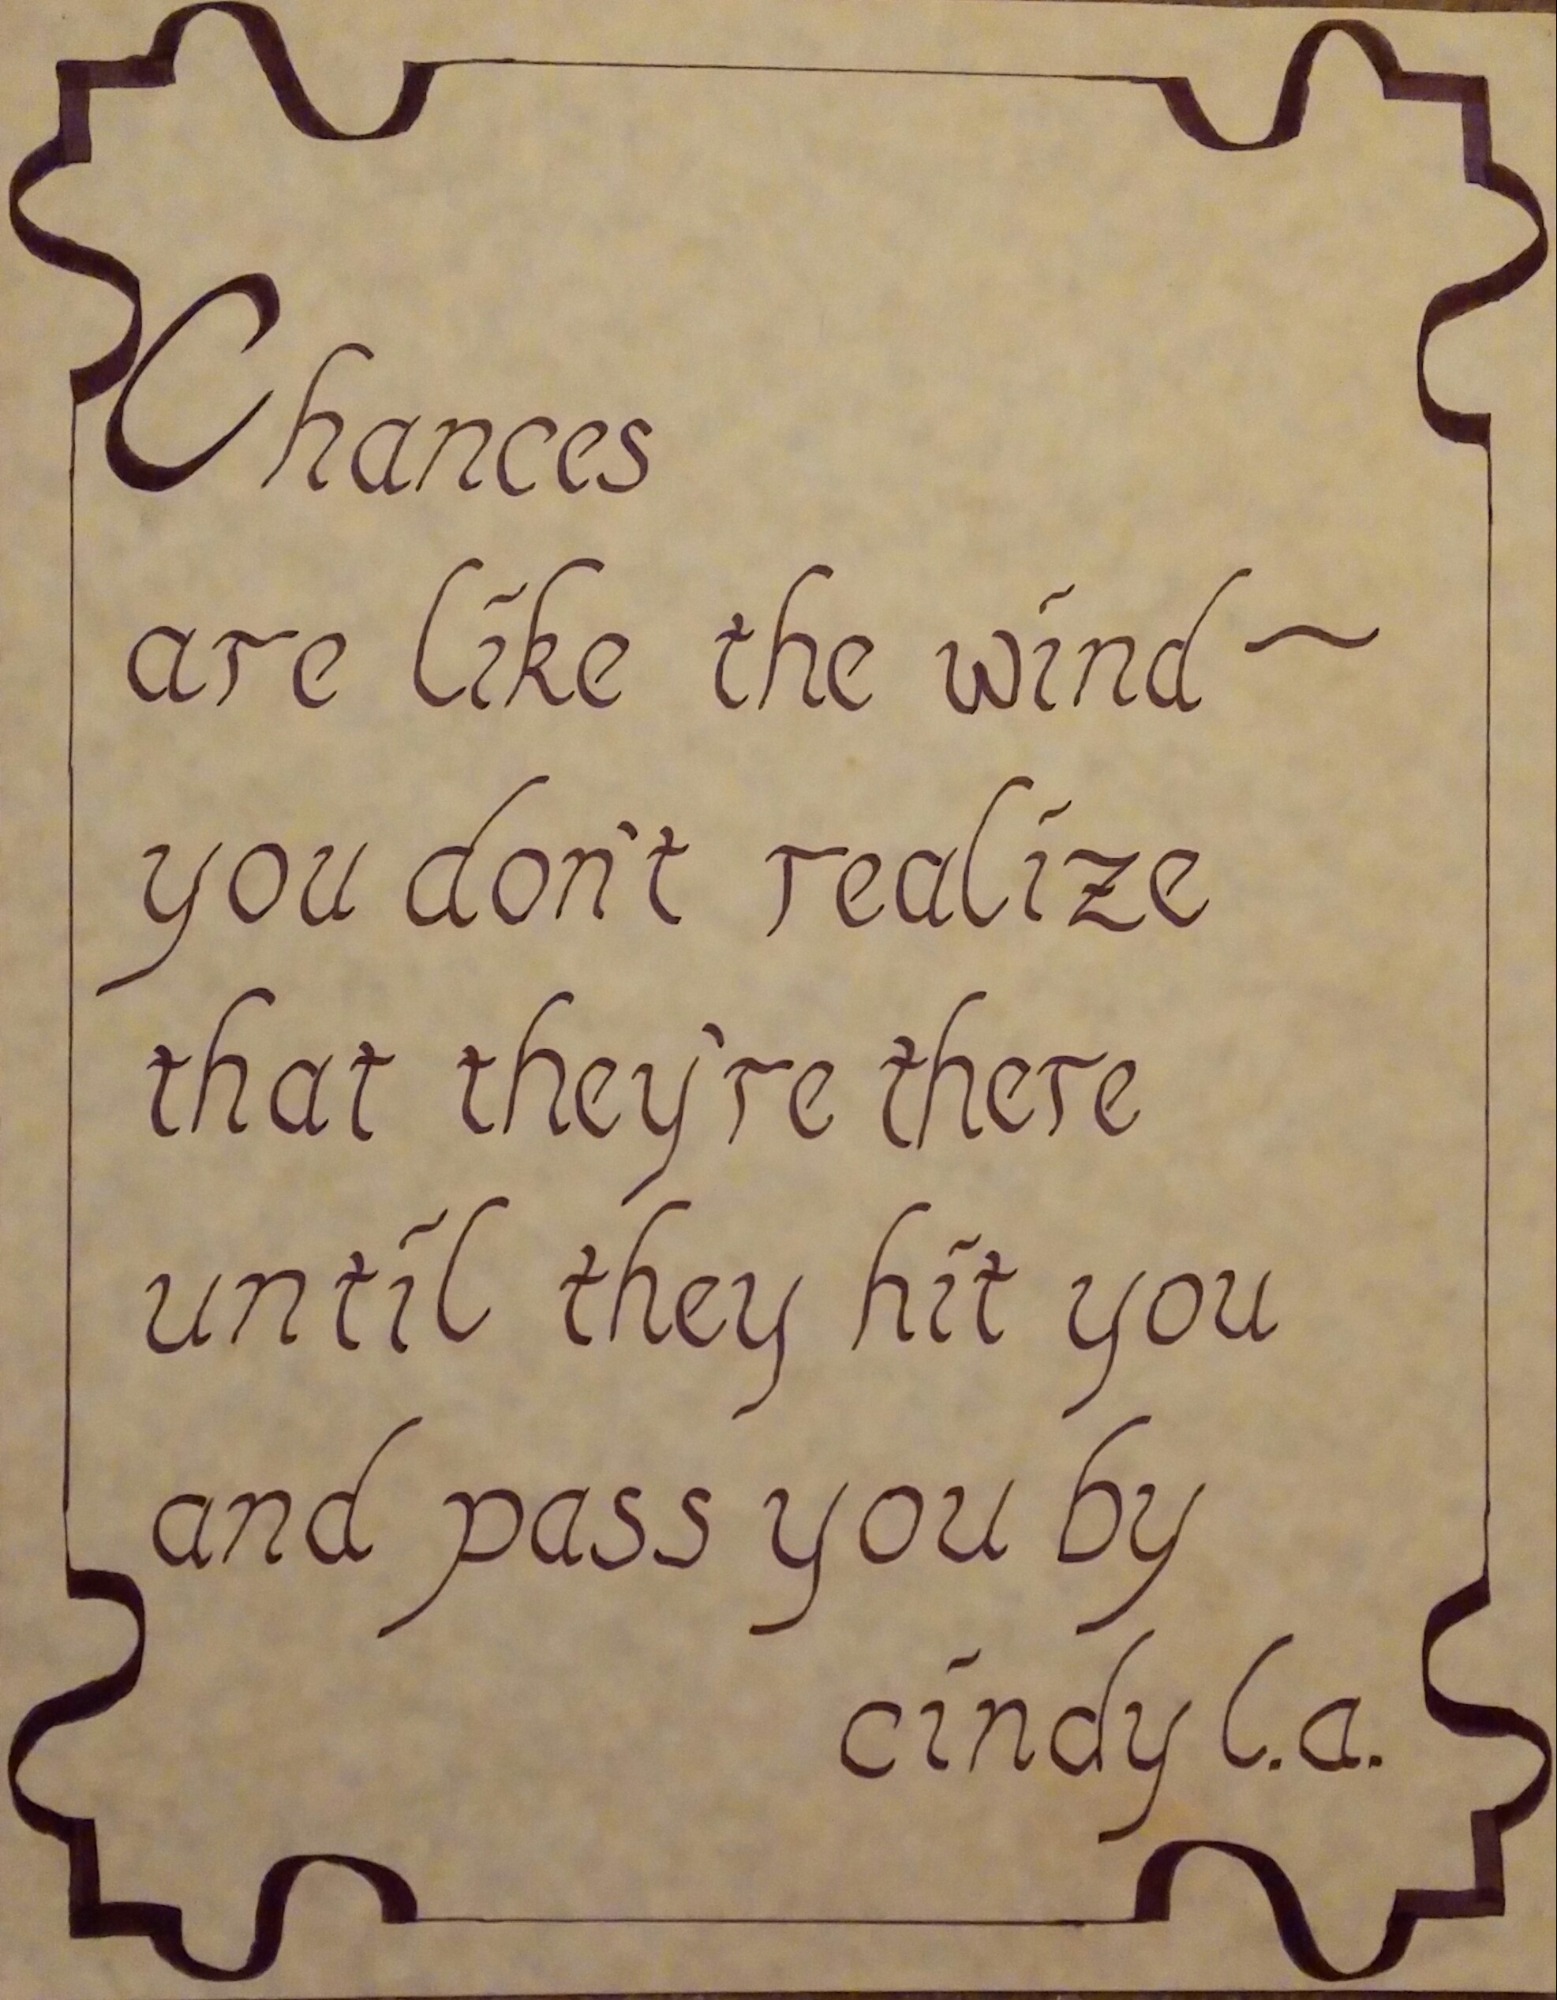 Chances
are like the wind~
you don't realize
that they're there
until they hit you
and pass you by
cindy l.a.